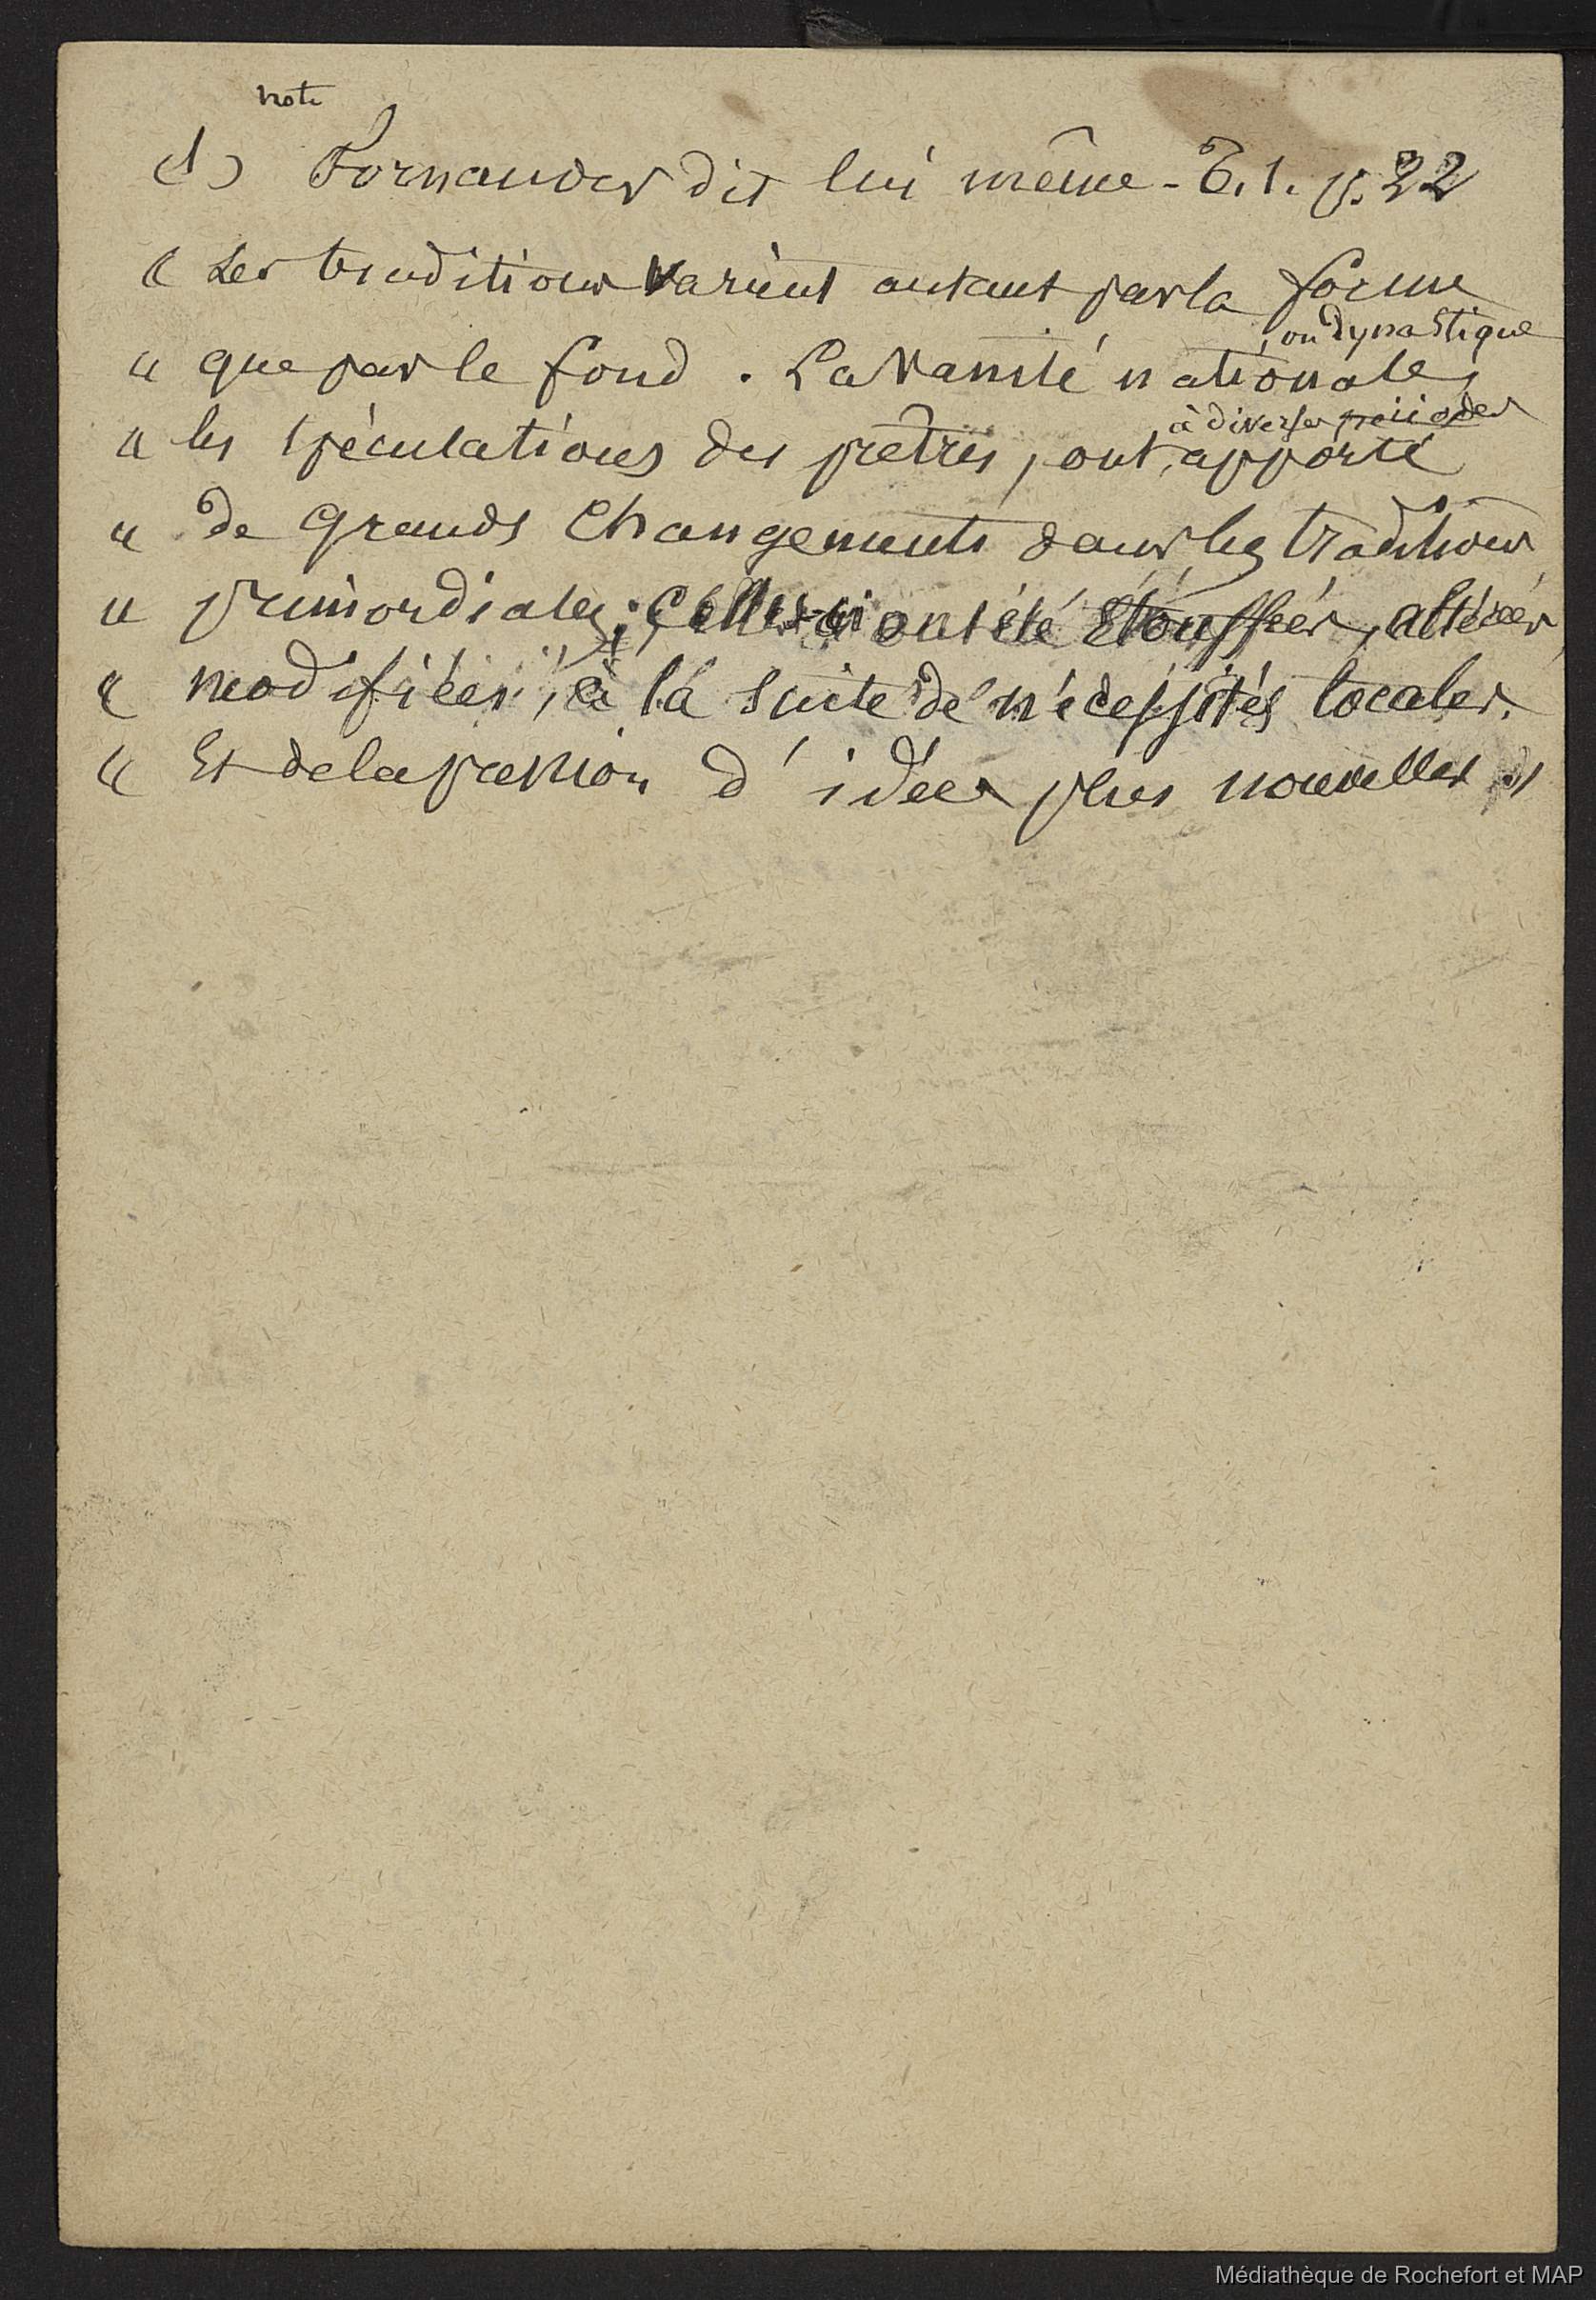 note
(1) Fornander dit lui même - T. 1. p. 22
« Les traditions varient autant par la forme
, ou dynastique
« que par le fond . La vanité nationale,
à diverses périodes
« les spéculations des prêtres, ont apporté
« de grands changements dans les traditions
« primordiales ; Celles-ci ont été étouffées, altérées,
« modifiées, à la suite de nécessités locales,
« Et de la pression d'idées plus nouvelles »
Médiathèque de Rochefort et MAP